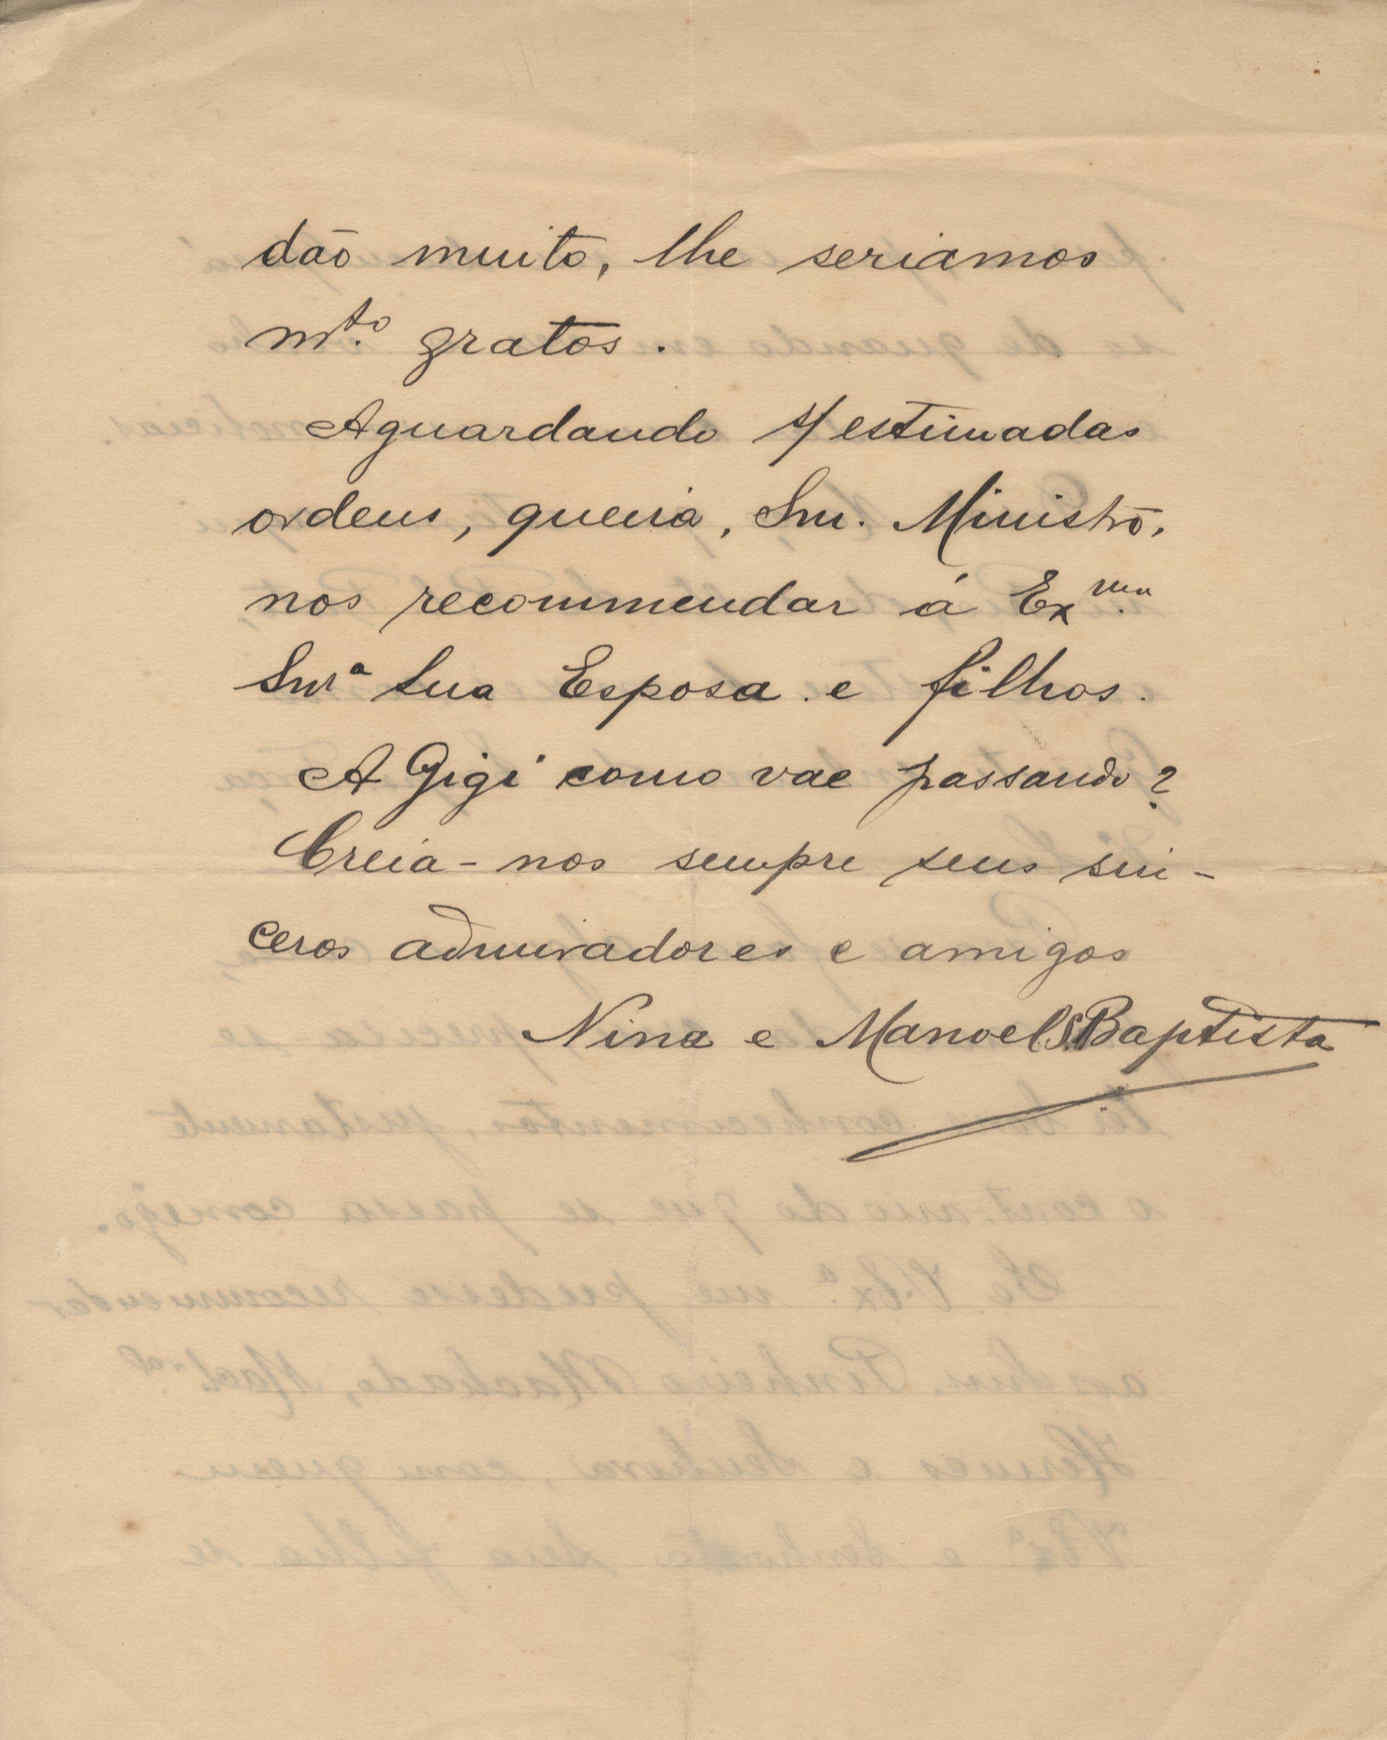 dão muito, lhe seriamos
mto. gratos.
Aguardando s/ estimadas
ordens, queira, Snr. Ministro,
nos recommendar á Exma.
Snrª Sua Esposa e filhos.
A Gigi como vae passando?
Creia-nos sempre seus sin-
ceros admiradores e amigos
Nina e Manoel S. Baptista